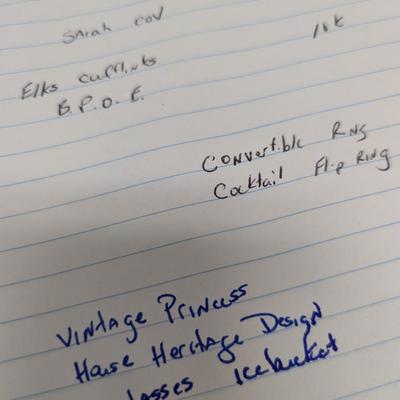 Sarah Cov
10K
Elks Cufflinks
B.P.O.E.
Convertible Ring
Cocktail Flip Ring
Vintage Princess
House Heritage Design
lasses icebucket